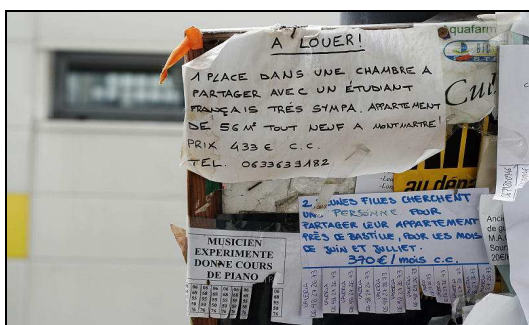 A LOUER!
1 PLACE DANS UNE CHAMBRE A
PARTAGER AVEC UN ÉTUDIANT
FRANÇAIS TRÉS SYMPA. APPARTEMENT
DE 56 M² TOUT NEUF A MONTMARTRE!
PRIX 433 € C.C.
TEL. 0633633182
quafarm
Cul
au dépa
2 JEUNES FILLES CHERCHENT
UNE PERSONNE POUR
PARTAGER LEUR APPARTEMENT
PRÈS DE BASTILLE, POUR LES MOIS
DE JUIN ET JUILLET.
370€/mois c.c.
MUSICIEN
EXPERIMENTE
DONNE COURS
DE PIANO
Anci
de g
M.A.